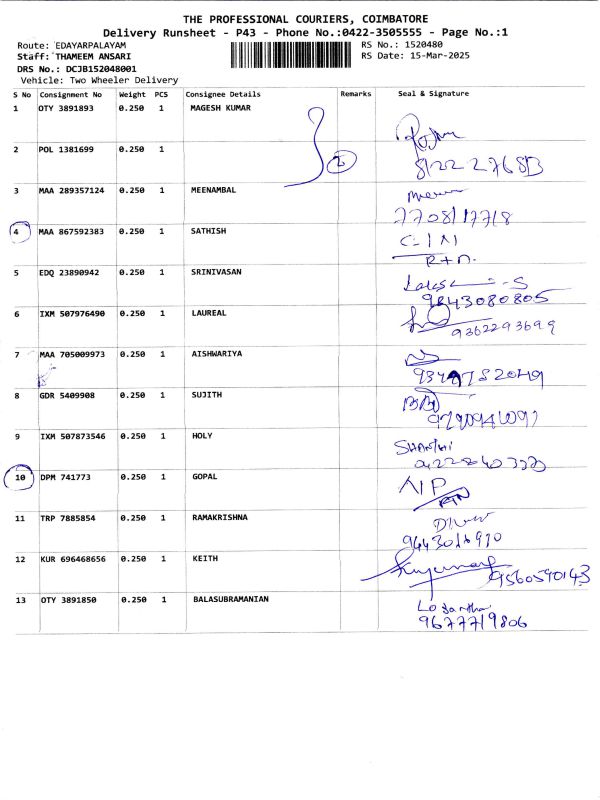 THE PROFESSIONAL COURIERS, COIMBATORE
Delivery Runsheet - P43 - Phone No.:0422-3505555 - Page No.:1
Route: EDAYARPALAYAM RS No.: 1520480
Staff: THAMEEM ANSARI RS Date: 15-Mar-2025
DRS No.: DCJB152048001
Vehicle: Two Wheeler Delivery
S No Consignment No Weight PCS Consignee Details Remarks Seal & Signature
1 OTY 3891893 0.250 1 MAGESH KUMAR
2 POL 1381699 0.250 1 2
3 MAA 289357124 0.250 1 MEENAMBAL
7708117718
4 MAA 867592383 0.250 1 SATHISH
5 EDQ 23890942 0.250 1 SRINIVASAN
9843080805
6 IXM 507976490 0.250 1 LAUREAL
9362293699
7 MAA 705009973 0.250 1 AISHWARIYA
8 GDR 5409908 0.250 1 SUJITH
9 IXM 507873546 0.250 1 HOLY
10 DPM 741773 0.250 1 GOPAL
11 TRP 7885854 0.250 1 RAMAKRISHNA
12 KUR 696468656 0.250 1 KEITH
9560590143
13 OTY 3891850 0.250 1 BALASUBRAMANIAN
9677719806